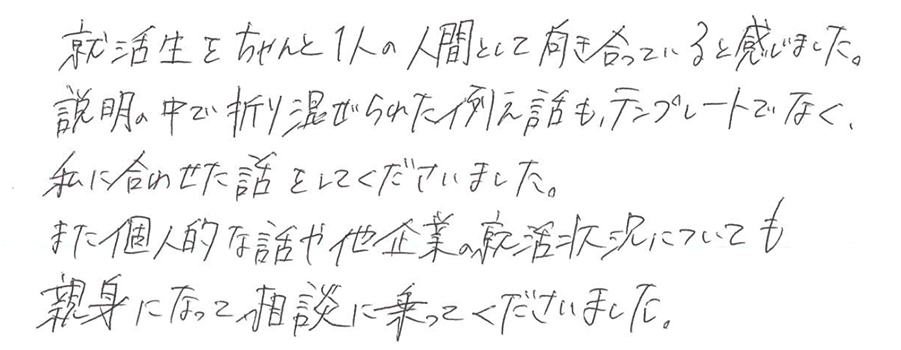 就活生をちゃんと1人の人間として向き合っていると感じました。
説明の中で折り混ぜられた例え話も、テンプレートでなく、
私に合わせた話をしてくださいました。
また個人的な話や他企業の就活状況についても
親身になって相談に乗ってくださいました。